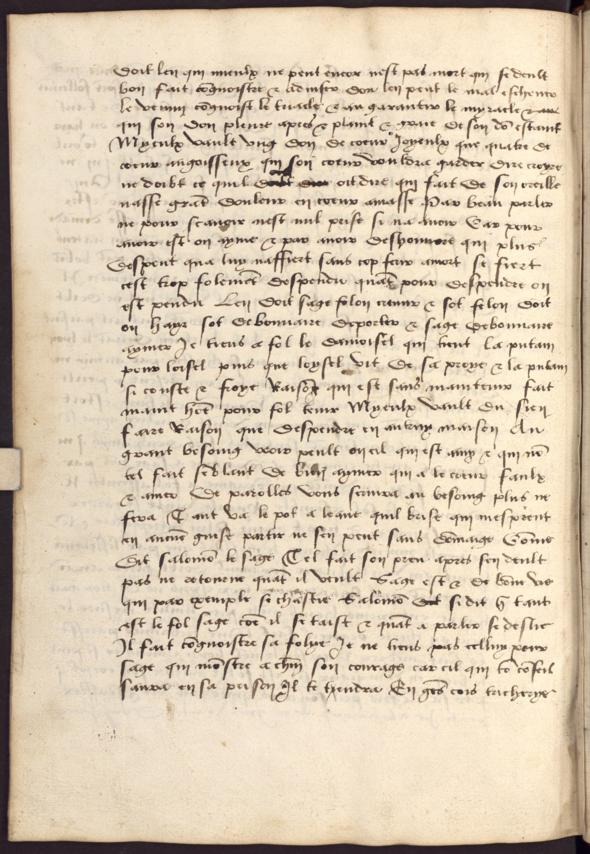 Doit len qui mieulx ne peut encor nest pas mort qui se deult
bon fait cognoistre & a don len peut le mal
le venin cognoist le triacle & au garantir le myracle
qui son don pleure apres & plaint & grace de son do estaint
Myeulx vault ung don de coeur Joyeulx que quatre de
coeur angoisseux qui son coeur vouldra garder dire croyre
ne doibt ce quil oit dire qui fait de son oreille
nasse grat douleur en coeur amasse Par beau parler
ne pour scauoir nest nul prise si na auoir Car pour
auoir est on ayme & par auoir deshonnore qui plus
Despent qua luy naffiert sans cop feru a mort se fiert
cest trop folemet despendu quat pour despendre on
est pendu Len doit sage felon cremir & sot felon doit
on hayr sot debonnaire deporter & sage debonnaire
aymer Je tiens a fol le damoisel qui tient la putain
pour loisel puis que loysel vit de sa proye & la putain
si couste & froye Raison qui est sans mainteneur fait
maint hoe pour fol tenir Myeulx vault du sien
faire Raison que despendre en autruy maison Au
grant besoing veoir peult on cil qui est amy & qui no
tel fait seblent de bien aymer qui a le coeur faulx
& amer De parolles vous seruira au besoing plus ne
fera Tant va le pot a leaue quil brise qui mesprent
en aucune guise partir ne sen peut sans domaige Comme
dit salomo le sage Tel fait son preu apres sen deult
pas ne retourne quat il veult Sage est & de bon vie
qui par exemple se chastie Salomo si dit q tant
est le fol sage coe il se taist & quat a parler se deslie
Il fait cognoistre sa folye Je ne tiens pas celluy pour
sage qui monstre a chun son courage car cil qui to coseil
saura en sa prison Il te tiendra En ges cois tricherye